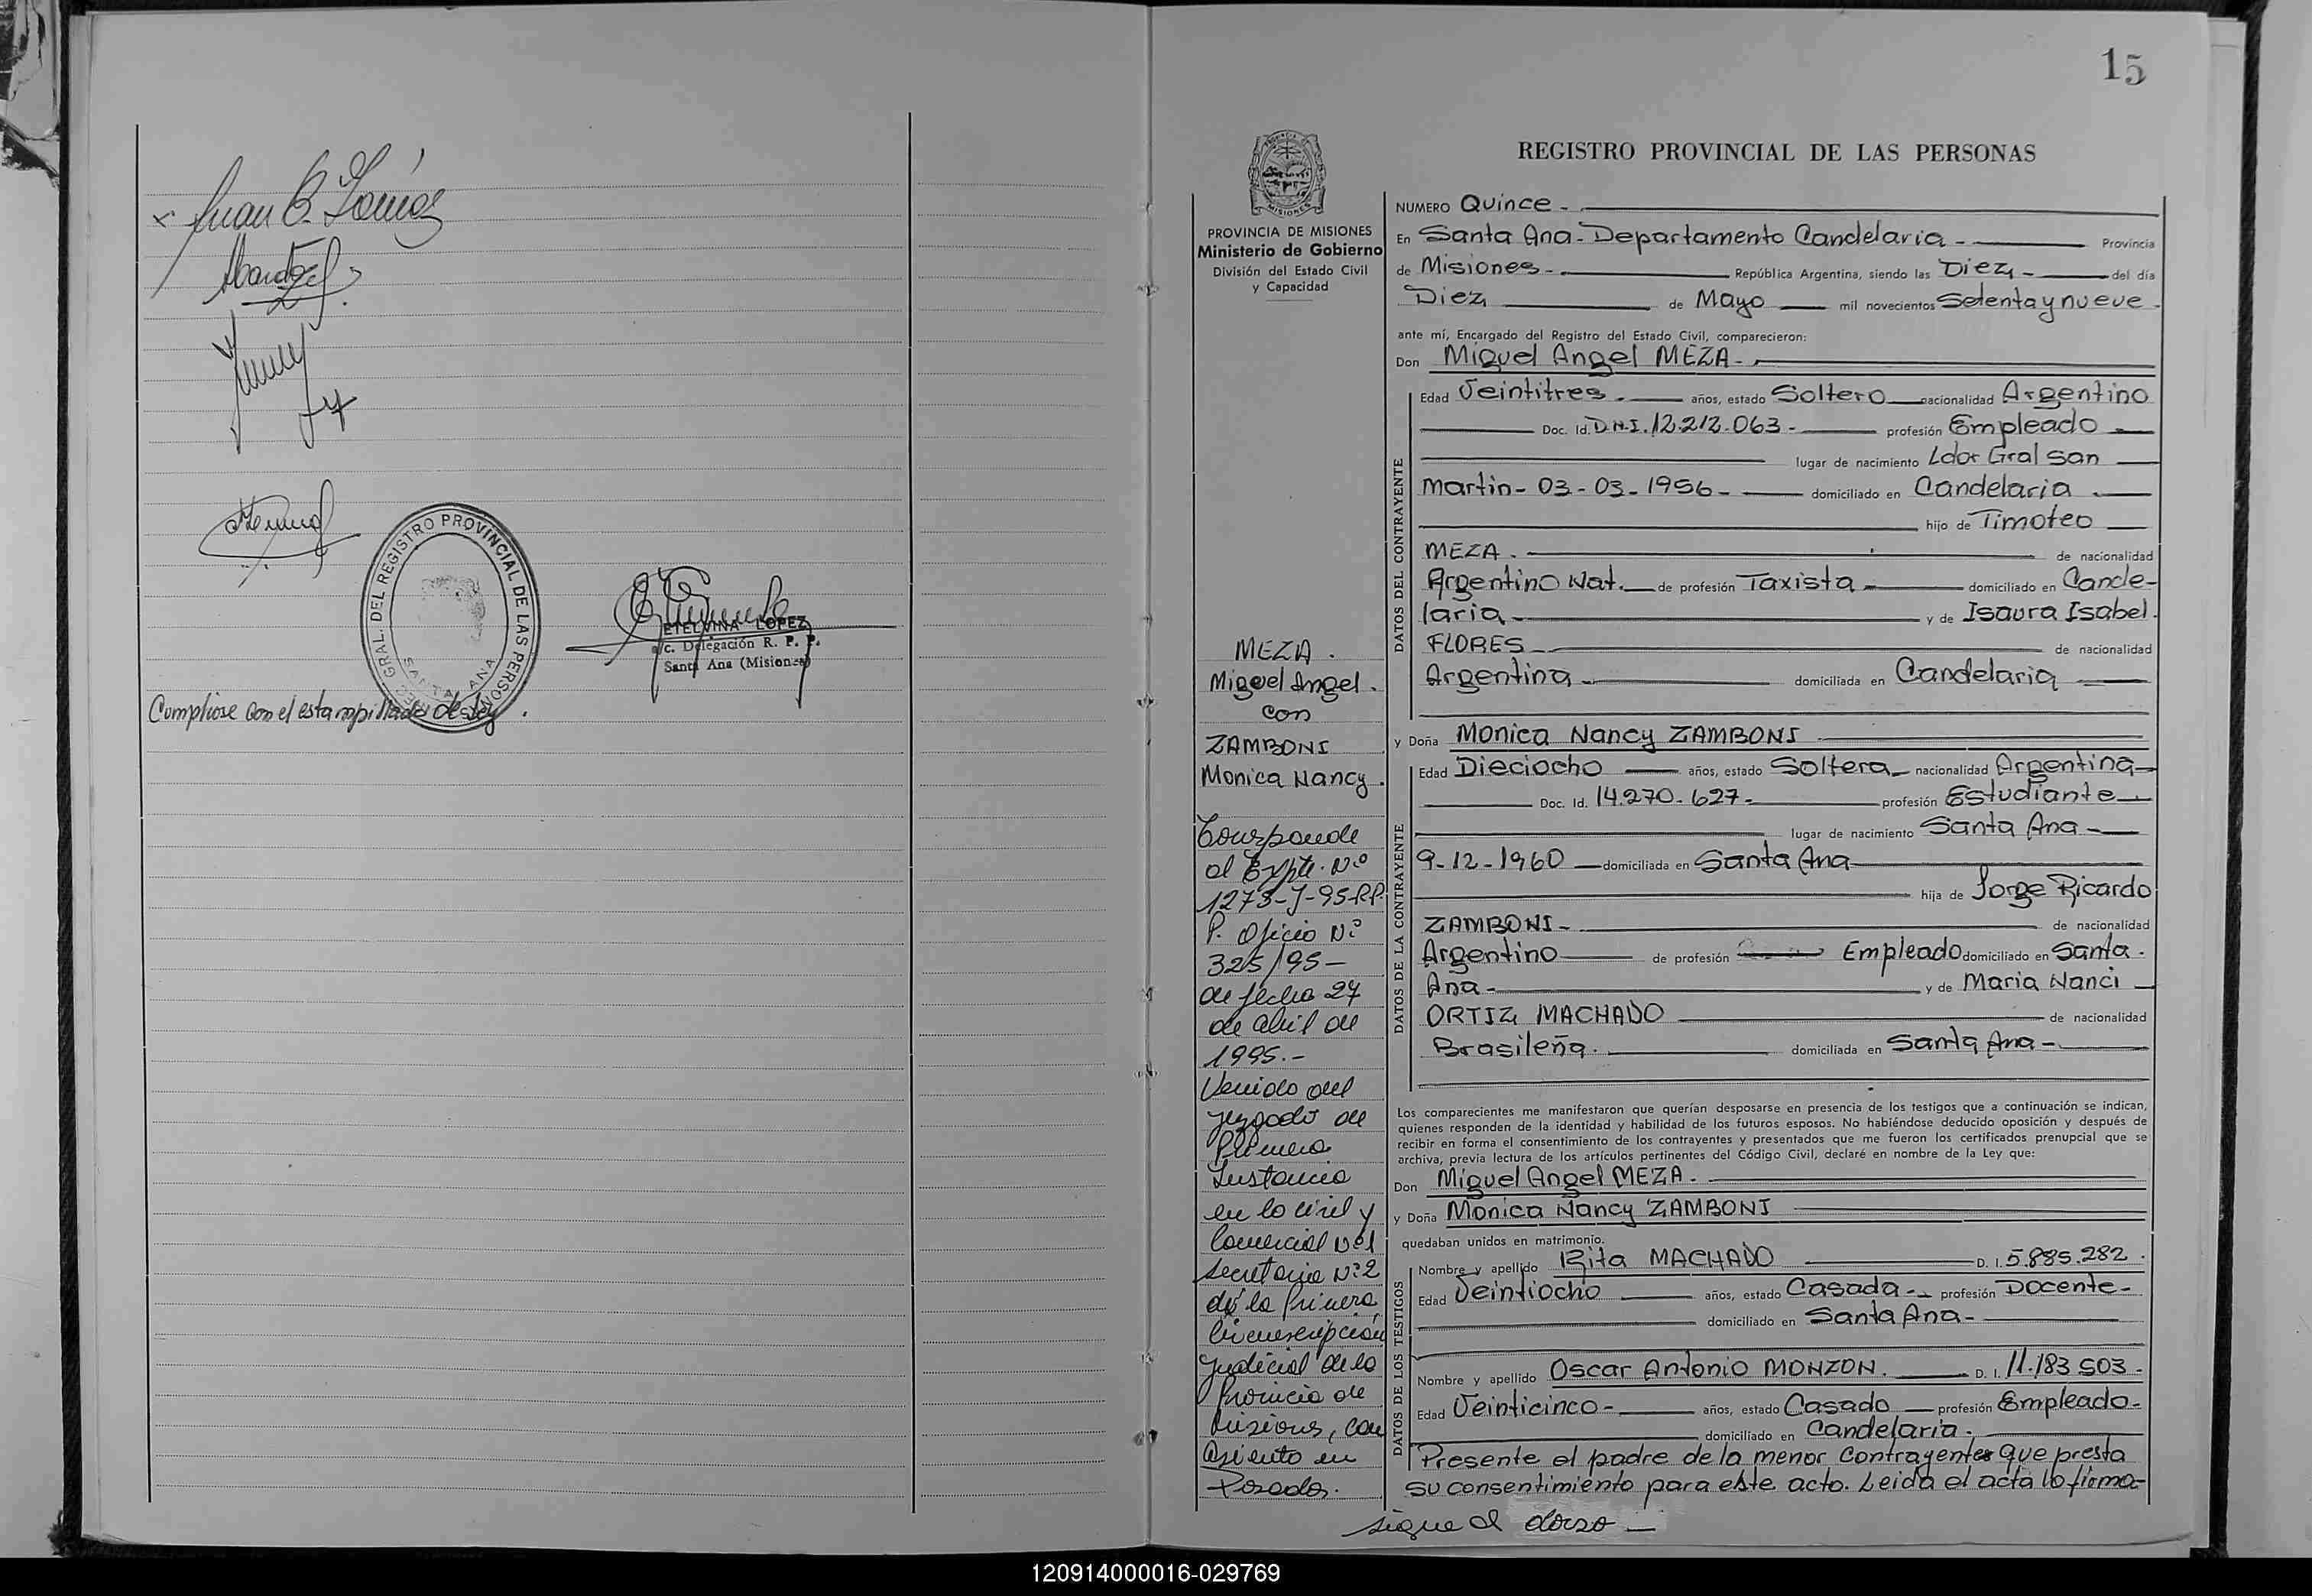 Juan C.
ETELVINA LOPEZ
a/c. Delegación R. P. P.
Santa Ana (Misiones)
GRAL. DEL REGISTRO PROVINCIAL DE LAS PERSONAS
SANTA ANA
Cumpliose con el estampillado de Ley.
15
REGISTRO PROVINCIAL DE LAS PERSONAS
MISIONES
PROVINCIA DE MISIONES
Ministerio de Gobierno
División del Estado Civil
y Capacidad
MEZA.
Miguel Angel.
con
ZAMBONI
Monica Nancy.
Corresponde
al Expte. Nº
1273-J-95-R.P.
P. Oficio Nº
325/95-
de fecha 27
de abril de
1995.-
Venido del
Juzgado de
Primera
Instancia
en lo civil y
Comercial Nº1
Secretaria Nº2
de la Primera
Circunscripción
Judicial de la
Provincia de
Misiones, con
asiento en
Posadas.
NUMERO Quince -.
En Santa Ana - Departamento Candelaria - Provincia
de Misiones - República Argentina, siendo las Diez - del día
Diez de Mayo mil novecientos Setenta y nueve -
ante mí, Encargado del Registro del Estado Civil, comparecieron:
Don Miguel Angel MEZA -
DATOS DEL CONTRAYENTE
Edad Veintitres. años, estado Soltero nacionalidad Argentino
Doc. Id. D.N.I. 12.212.063 - profesión Empleado
lugar de nacimiento Ldor Gral San
Martin - 03 - 03 - 1956 - domiciliado en Candelaria.
hijo de Timoteo
MEZA. de nacionalidad
Argentino Nat. de profesión Taxista - domiciliado en Cande-
laria - y de Isaura Isabel.
FLORES - de nacionalidad
Argentina - domiciliada en Candelaria
y Doña Monica Nancy ZAMBONI
DATOS DE LA CONTRAYENTE
Edad Dieciocho años, estado Soltera - nacionalidad Argentina
Doc. Id. 14.270.627 - profesión Estudiante
lugar de nacimiento Santa Ana -
9 - 12 - 1960 domiciliada en Santa Ana
hija de Jorge Ricardo
ZAMBONI - de nacionalidad
Argentino de profesión Empleado domiciliado en Santa.
Ana - y de Maria Nanci
ORTIZ MACHADO de nacionalidad
Brasileña. domiciliada en Santa Ana -
Los comparecientes me manifestaron que querían desposarse en presencia de los testigos que a continuación se indican,
quienes responden de la identidad y habilidad de los futuros esposos. No habiéndose deducido oposición y después de
recibir en forma el consentimiento de los contrayentes y presentados que me fueron los certificados prenupcial que se
archiva, previa lectura de los artículos pertinentes del Código Civil, declaré en nombre de la Ley que:
Don Miguel Angel MEZA.
y Doña Monica Nancy ZAMBONI
quedaban unidos en matrimonio.
DATOS DE LOS TESTIGOS
Nombre y apellido Rita MACHADO D. I. 5.885.282.
Edad Veintiocho años, estado Casada - profesión Docente -
domiciliado en Santa Ana -
Nombre y apellido Oscar Antonio MONZON. D. I. 11.183.503 -
Edad Veinticinco - años, estado Casado profesión Empleado -
domiciliado en Candelaria.
Presente el padre de la menor contrayente que presta
su consentimiento para este acto. Leida el acta lo firma-
sigue al dorso -
120914000016-029769